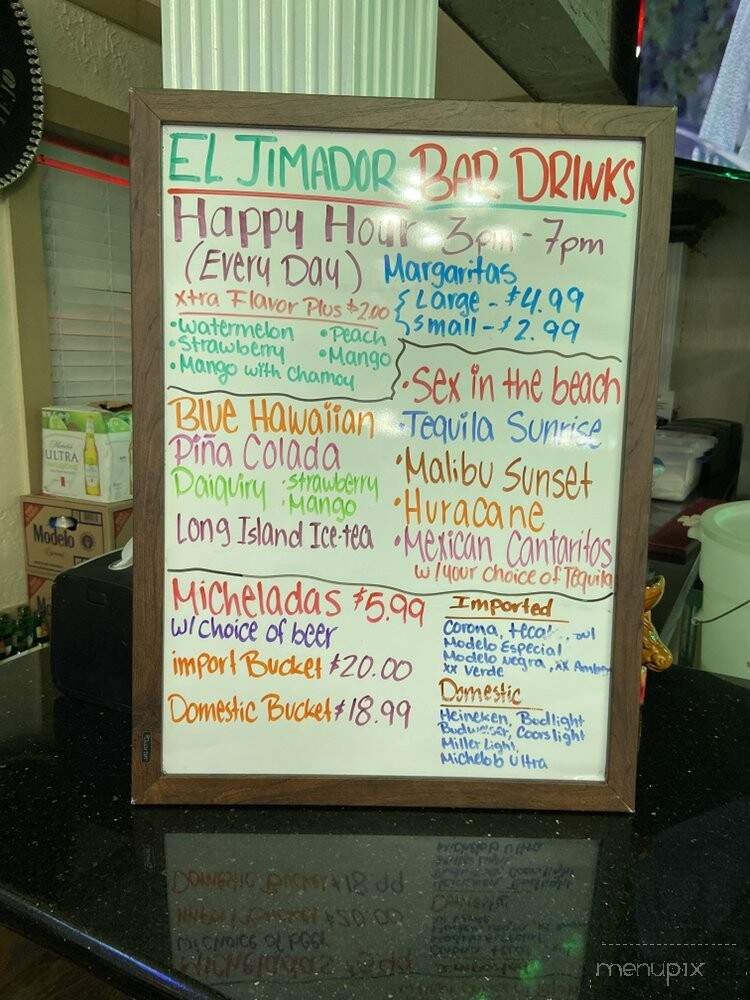 EL JIMADOR BAR DRINKS
Happy Hour 3pm - 7pm
(Every Day)
Margaritas
Large - $4.99
Small - $2.99
xtra Flavor Plus $2.00
•Watermelon •Peach
•Strawberry •Mango
•Mango with Chamoy
•Sex in the beach
•Tequila Sunrise
•Malibu Sunset
•Huracane
•Mexican Cantaritos
w/your choice of Tequila
Blue Hawaiian
Piña Colada
Daiquiry •Strawberry
•Mango
Long Island Ice-tea
Micheladas $5.99
w/choice of beer
import Bucket $20.00
Domestic Bucket $18.99
Imported
Corona,
Modelo Especial
Modelo Negra, XX Amber
XX Verde
Domestic
Heineken, Budlight
Budweiser, Coors light
Miller Light,
Michelob Ultra
ULTRA
Modelo
menupix